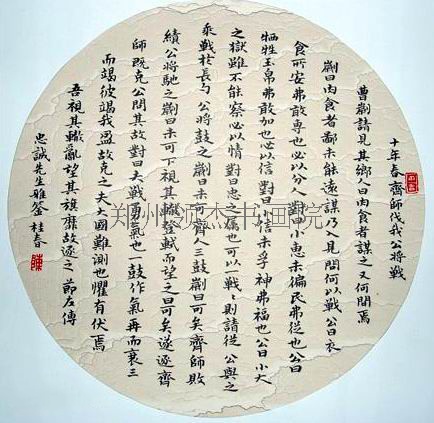 十年春齊師伐我公將戰
曹劌請見其鄉人曰肉食者謀之又何間焉
劌曰肉食者鄙未能遠謀乃入見問何以戰公曰衣
食所安弗敢專也必以分人對曰小惠未徧民弗從也公曰
犧牲玉帛弗敢加也必以信對曰小信未孚神弗福也公曰小大
之獄雖不能察必以情對曰忠之屬也可以一戰々則請從公與之
乘戰於長勺公將鼓之劌曰未可齊人三鼓劌曰可矣齊師敗
績公將馳之劌曰未可下視其轍登軾而望之曰可矣遂逐齊
師既克公問其故對曰夫戰勇氣也一鼓作氣再而衰三
而竭彼竭我盈故克之夫大國難測也懼有伏焉
吾視其轍亂望其旗靡故逐之 節左傳
忠誠先生雅鑒 桂春
郑州项杰书画院